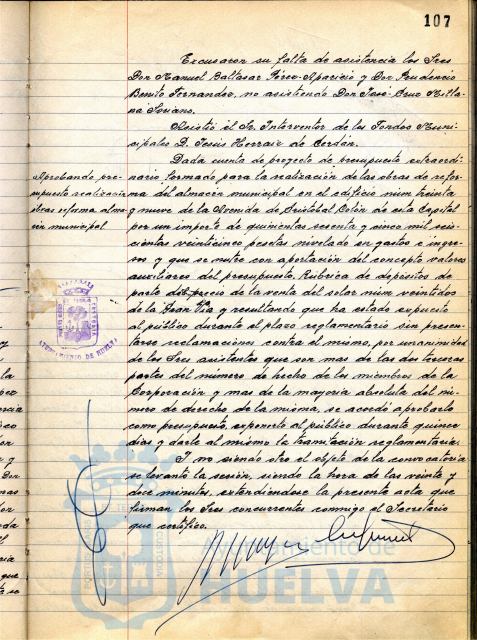 107
Excusaron su falta de asistencia los Sres
Don Manuel Baltasar Pérez-Aparicio y Don Prudencio
Benito Fernandez, no asistiendo Don José Cruz Milla-
na Soriano.
Asistió el Sr. Interventor de los Fondos Muni-
cipales D. Jesús Herraiz de Cerdán.
Dada cuenta de proyecto de presupuesto extraordi-
nario formado para la realización de las obras de refor-
ma del almacén municipal en el edificio núm treinta
y nueve de la Avenida de Cristóbal Colón de esta Capital
por un importe de quinientas sesenta y cinco mil seis-
cientas veinticinco pesetas nivelado en gastos e ingre-
sos y que se nutre con aportación del concepto valores
auxiliares del presupuesto. Rúbrica de depósitos de
parte del precio de la venta del solar núm veintidos
de la Gran Vía y resultando que ha estado expuesto
al público durante el plazo reglamentario sin presen-
tarse reclamaciones contra el mismo, por unanimidad
de los Sres asistentes que son mas de las dos terceras
partes del número de hecho de los miembros de la
Corporación y mas de la mayoría absoluta del nú-
mero de derecho de la misma, se acordó aprobarlo
como presupuesto, exponerlo al público durante quince
dias y darle al mismo la tramitación reglamentaria.
Y no siendo otro el objeto de la convocatoria
se levantó la sesión, siendo la hora de las veinte y
doce minutos, extendiéndose la presente acta que
firman los Sres concurrentes conmigo el Secretario
que certifico.
Aprobando pre-
supuesto realización
obras reforma alma-
cén municipal
AYUNTAMIENTO DE HUELVA
Ayuntamiento de
HUELVA